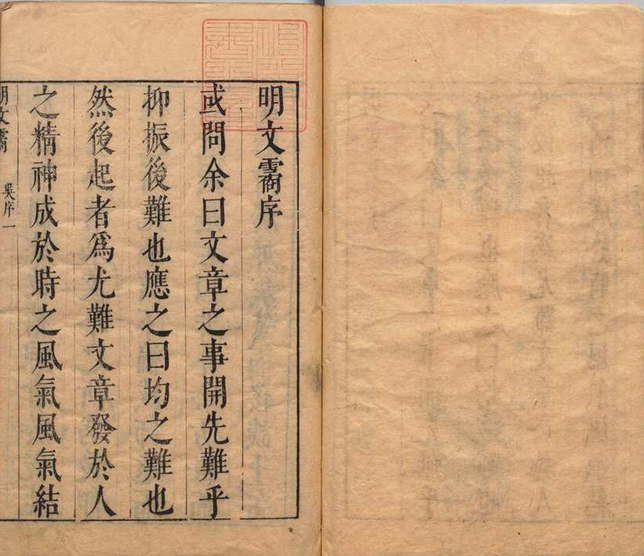 明文霱序
或問余曰文章之事開先難乎
抑振後難也應之曰均之難也
然後起者為尤難文章發於人
之精神成於時之風氣風氣結
明文霱
吳序一